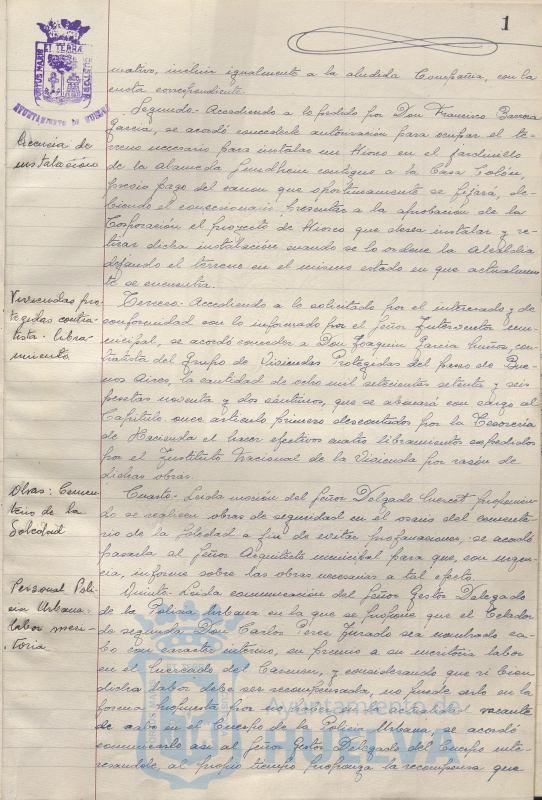 1
PORTUS MARIS ET TERRÆ CUSTOS
AYUNTAMIENTO DE HUELVA
mativo, incluir igualmente a la aludida Compañía, con la
cuota correspondiente.
Licencia de
instalación
Segundo.- Accediendo a lo pedido por Don Francisco Barrera
García, se acordó concederle autorización para ocupar el te-
rreno necesario para instalar un Kiosco en el jardinillo
de la Alameda Sundheim contiguo a la Casa Colón,
previo pago del canon que oportunamente se fijará, de-
biendo el concesionario presentar a la aprobación de la
Corporación el proyecto de Kiosco que desea instalar y re-
tirar dicha instalación cuando se lo ordene la Alcaldía
dejando el terreno en el mismo estado en que actualmen
te se encuentra.
Viviendas pro
tegidas contra-
tista: libra-
miento
Tercero.- Accediendo a lo solicitado por el interesado y de
conformidad con lo informado por el Señor Interventor mu-
nicipal, se acordó conceder a Don Joaquin Garcia Muñoz, con
tratista del Grupo de Viviendas Protegidas del paseo de Bue-
nos Aires, la cantidad de ocho mil setecientas setenta y seis
pesetas noventa y dos céntimos, que se abonará con cargo al
Capítulo once artículo primero descontados por la Tesorería
de Hacienda al hacer efectivos cuatro libramientos expedidos
por el Instituto Nacional de la Vivienda por razón de
dichas obras.
Obras: Cemen-
terio de la
Soledad
Cuarto.- Leída moción del Señor Delgado proponien-
do se realicen obras de seguridad en el osario del cemente-
rio de la Soledad a fin de evitar profanaciones, se acordó
pasarla al Señor Arquitecto municipal para que, con urgen-
cia, informe sobre las obras necesarias a tal efecto.
Personal Poli
cía Urbana:
labor meri-
toria
Quinto.- Leída comunicación del Señor Gestor Delegado
de la Policía Urbana en la que se propone que el Celador
de segunda Don Carlos Perez Jurado sea nombrado ca-
bo con carácter interino, en premio a su meritoria labor
en el Mercado del Carmen, y considerando que si bien
dicha labor debe ser recompensada, no puede serlo en la
forma propuesta por no existir en la actualidad vacante
de cabo en el Cuerpo de la Policía Urbana, se acordó
comunicarlo así al Señor Gestor Delegado del Cuerpo inte-
resandole, al propio tiempo proponga la recompensa que
Ayuntamiento de
HUELVA